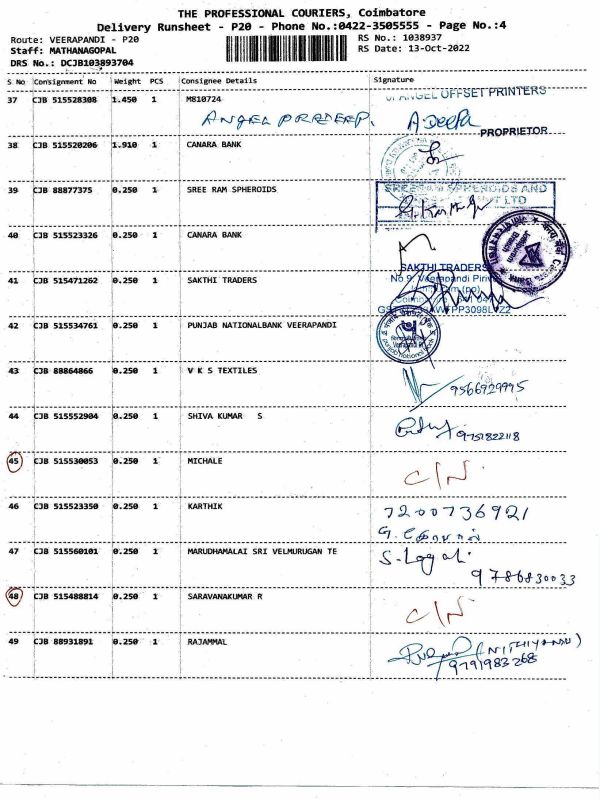 THE PROFESSIONAL COURIERS, Coimbatore
Delivery Runsheet - P20 - Phone No.:0422-3505555 - Page No.:4
Route: VEERAPANDI - P20
RS No.: 1038937
Staff: MATHANAGOPAL
RS Date: 13-Oct-2022
DRS No.: DCJB103893704
S No Consignment No Weight PCS Consignee Details Signature
37 CJB 515528308 1.450 1 M810724 ANGEL OFFSET PRINTERS
ANGEL PRADEEP. A.Deepa
PROPRIETOR
38 CJB 515520206 1.910 1 CANARA BANK
39 CJB 88877375 0.250 1 SREE RAM SPHEROIDS SREE RAM SPHEROIDS AND
LTD
40 CJB 515523326 0.250 1 CANARA BANK
SAKTHI TRADERS
41 CJB 515471262 0.250 1 SAKTHI TRADERS No 9, Veerapandi
42 CJB 515534761 0.250 1 PUNJAB NATIONALBANK VEERAPANDI
43 CJB 88864866 0.250 1 V K S TEXTILES
9566929995
44 CJB 515552904 0.250 1 SHIVA KUMAR S
9751822118
45 CJB 515530053 0.250 1 MICHALE C/N
46 CJB 515523350 0.250 1 KARTHIK 7200736921
47 CJB 515560101 0.250 1 MARUDHAMALAI SRI VELMURUGAN TE
9786830033
48 CJB 515488814 0.250 1 SARAVANAKUMAR R C/N
49 CJB 88931891 0.250 1 RAJAMMAL
9791983268